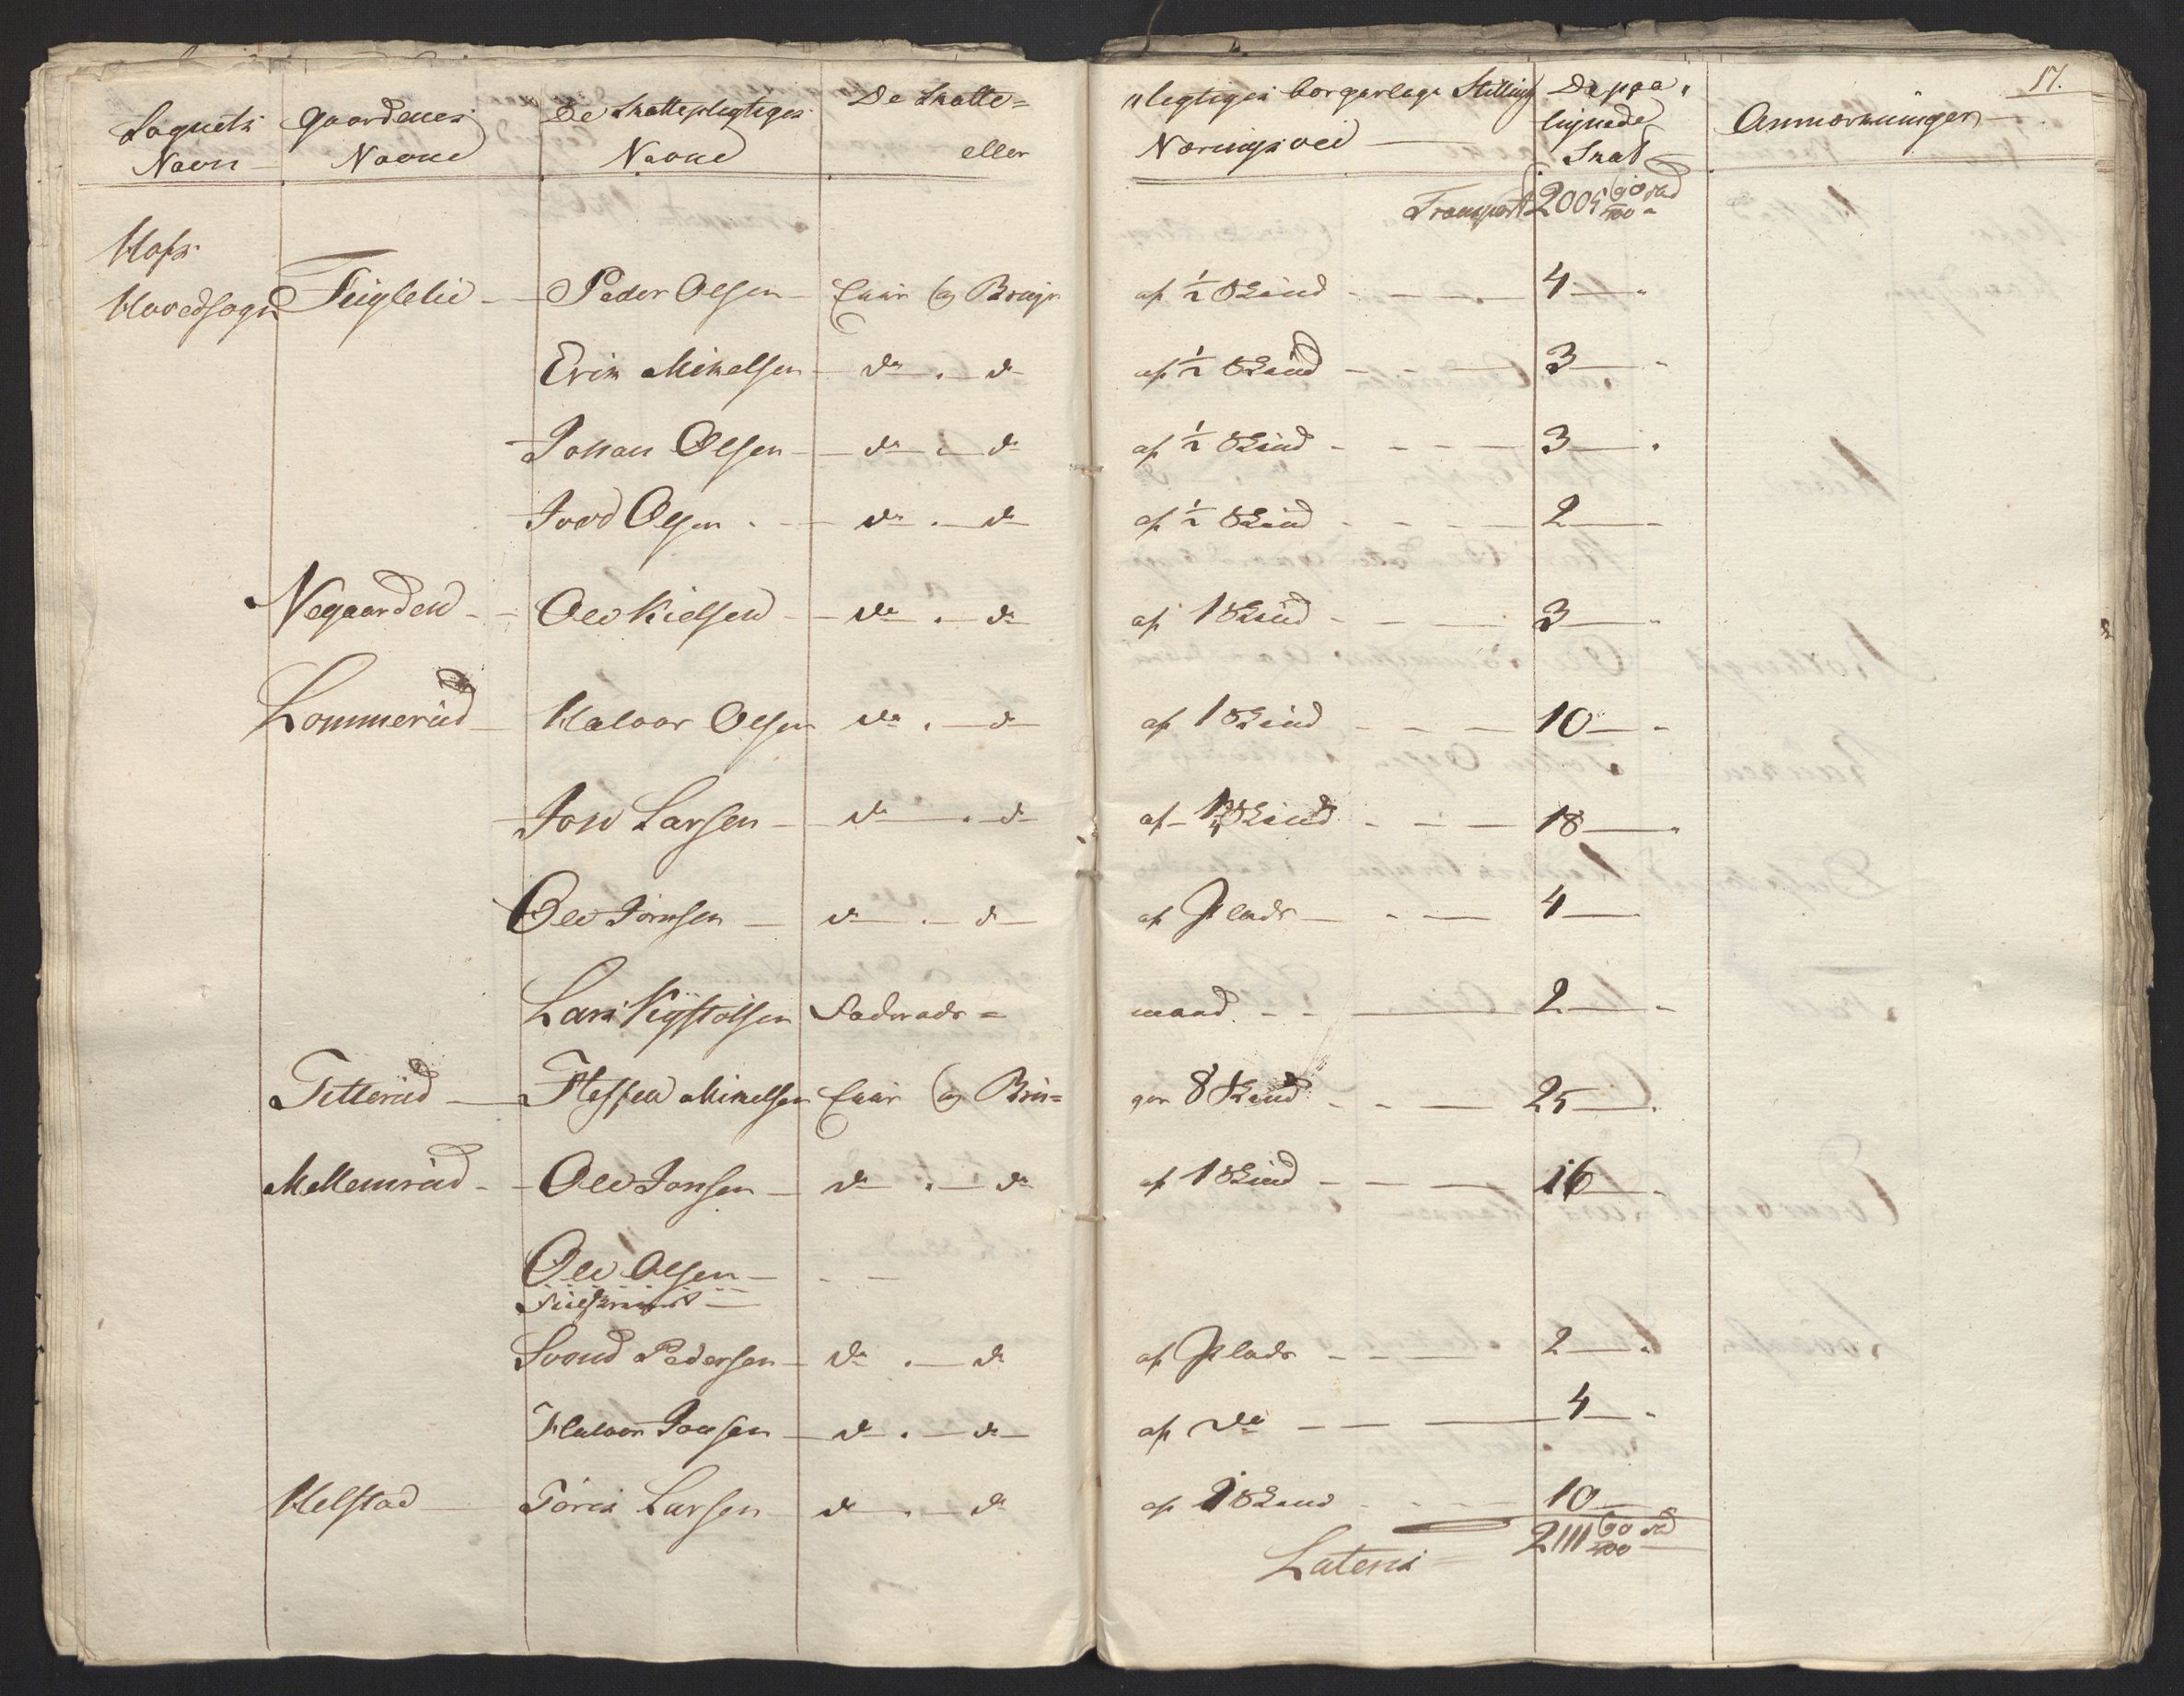 17.
Sognets Navn Gaardenes Navne De Skattepligtiges Navne De Skatte= eller pligtiges borgerlige Stilling Næringsvei De paalignede Skat Anmærkninger
Transport 2005 60/100 sd
Hofs
Hovedsogn Teiglelie Peder Olsen Eier og Bruger af ½ Skind 4
Erik Mikelsen do . do af ½ Skind 3
Johan Olsen do . do af ½ Skind 3
Olsen do . do af ½ Skind 2
Negaarden Ole Kielsen do . do af 1 Skind 3
Lommerud Halvor Olsen do . do af 1 Skind 10
Jon Larsen do . do af Skind 18
Ole Jonsen do . do af Plads 4
Lars Føderaads= mand 2
Titterud Steffen Mikelsen Eier og Bru= ger 8 Skind 25
Mellemrud Ole Jonsen do . do af 1 Skind 16
Ole Olsen
Svend Pedersen do . do af Plads 2
Halvor Jonsen do . do af do 4
Helstad Tøres Larsen do . do af 1 Skind 10
Lateris 2111 60/100 sd